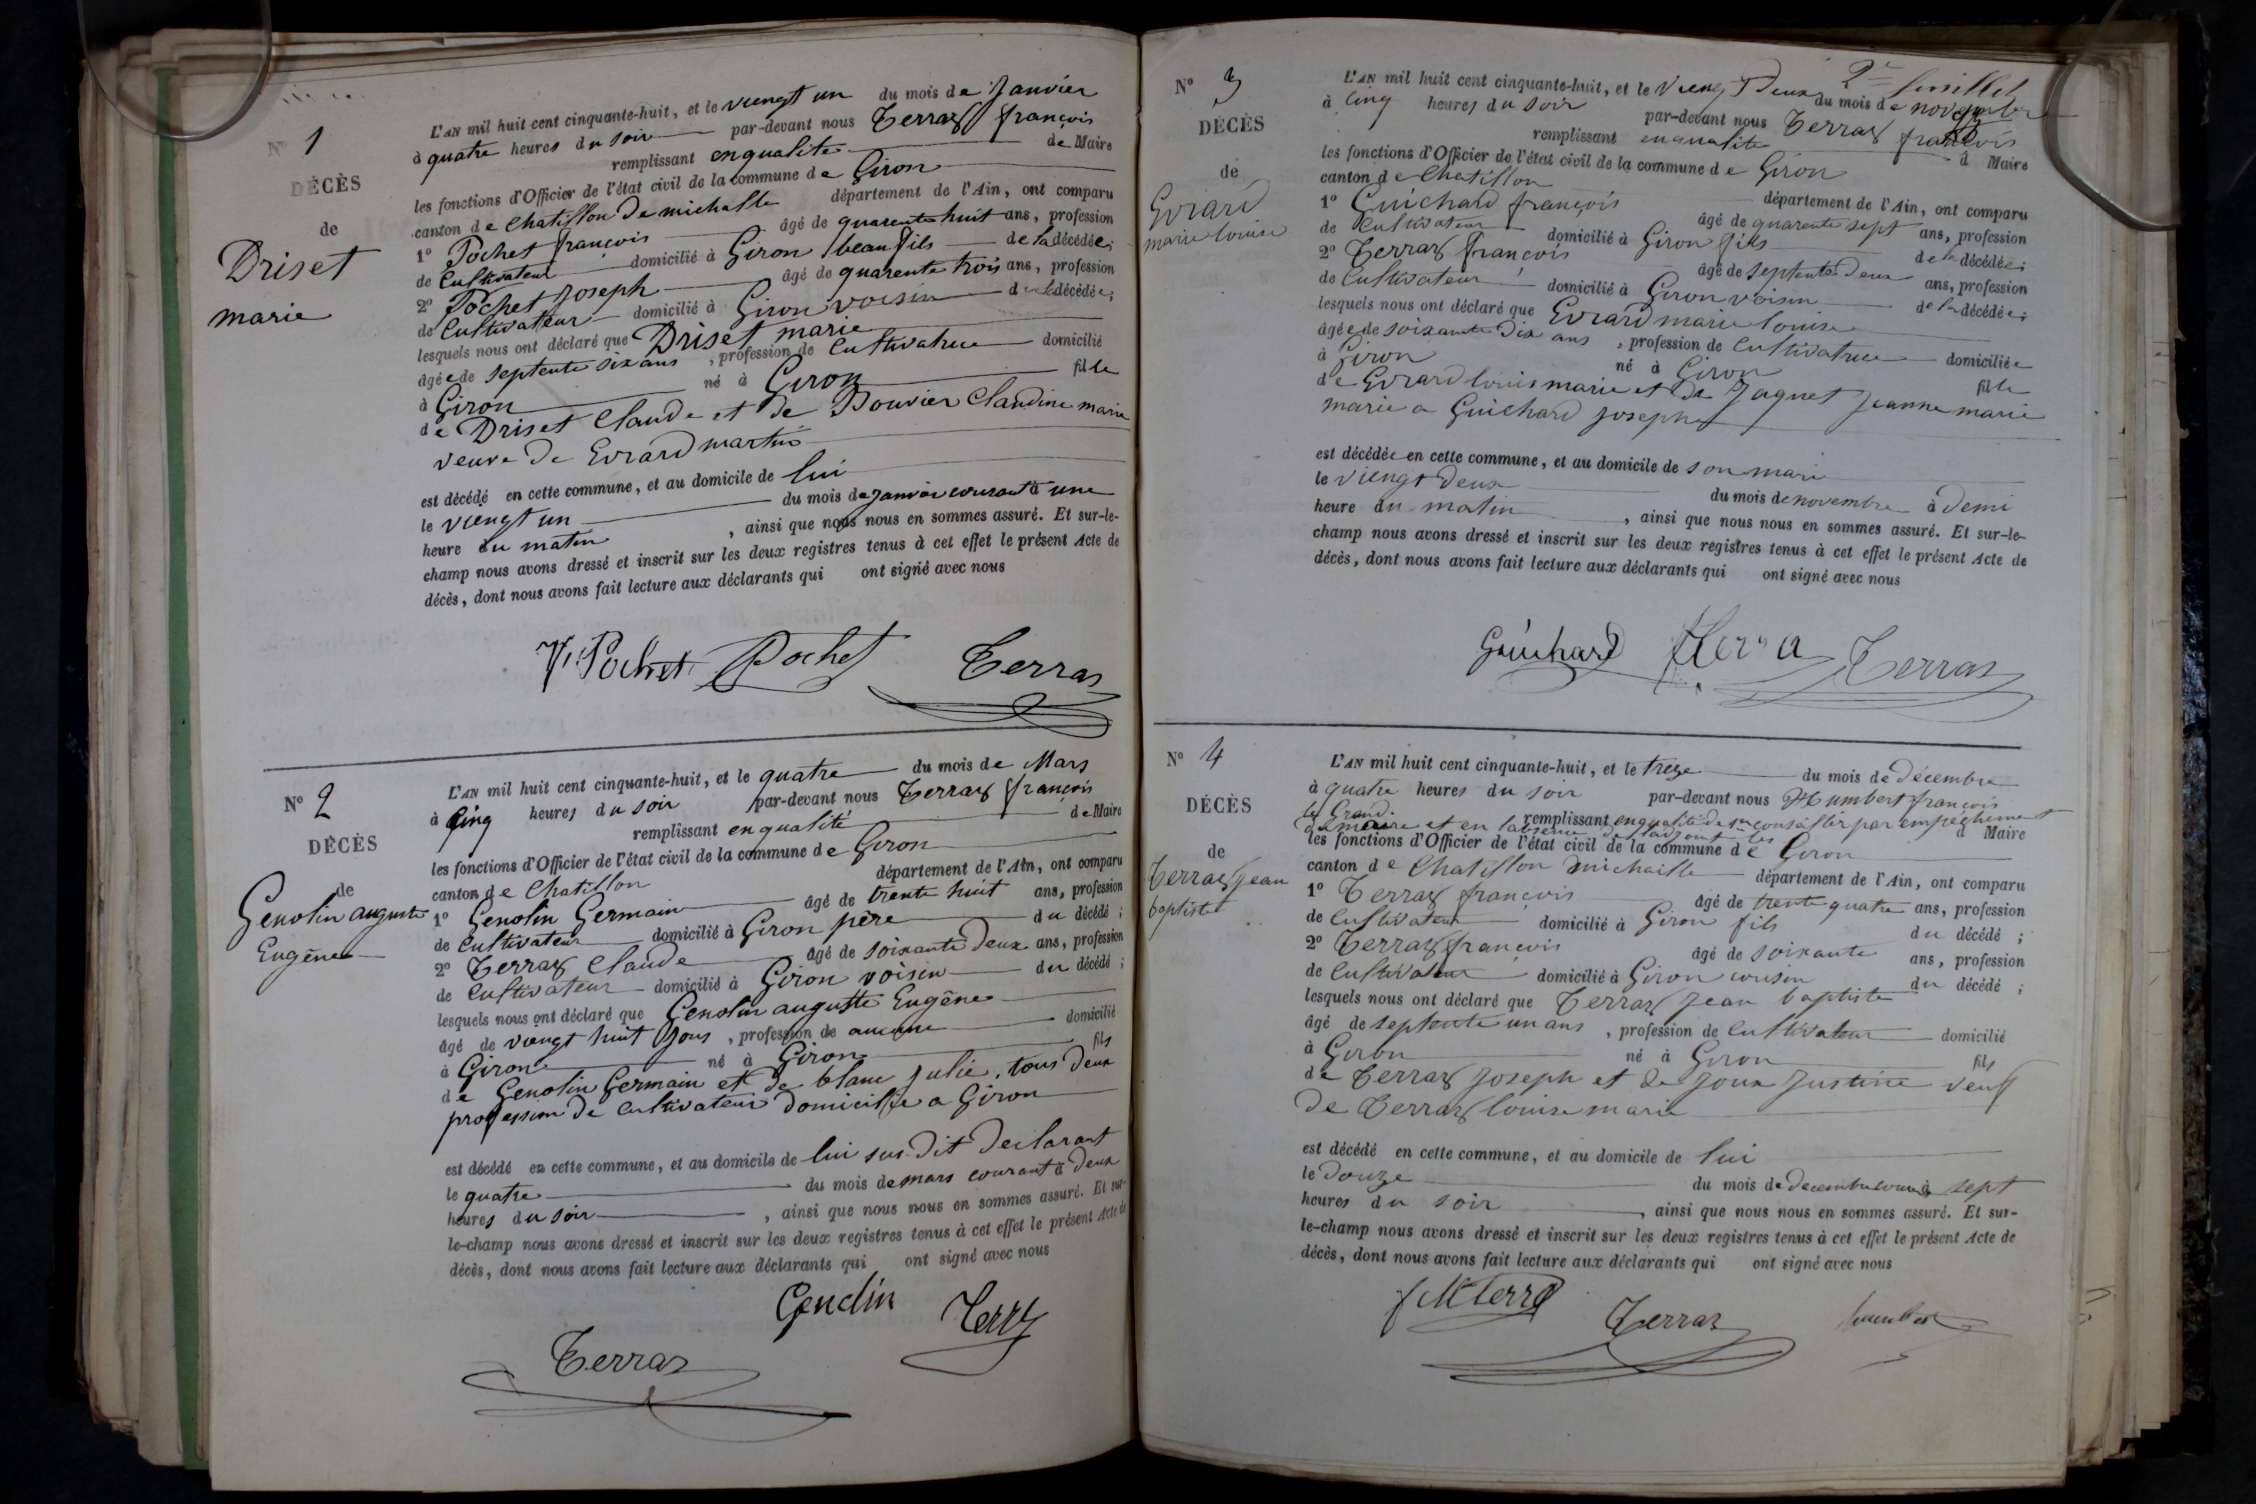 N° 1
DÉCÈS
de
Driset
marie
L'AN mil huit cent cinquante-huit, et le viengt un du mois de Janvier
à quatre heures du soir par-devant nous Terraz françois
remplissant enqualite de Maire
les fonctions d'Officier de l'état civil de la commune de Giron
canton de Chatillon de michaille département de l'Ain, ont comparu
1° Pochet françois âgé de quarente huit ans, profession
de Cultivateur domicilié à Giron beau fils de la décédée;
2° Pochet Joseph âgé de quarente trois ans, profession
de Cultivateur domicilié à Giron voisin de la décédée;
lesquels nous ont déclaré que Driset marie
âgée de septente six ans, profession de Cultivatrice domicilié
à Giron né à Giron fille
de Driset Claude et de Bouvier Claudine marie
veuve de Evrard martin
est décédé en cette commune, et au domicile de lui
le viengt un du mois de janvier courant à une
heure du matin, ainsi que nous nous en sommes assuré. Et sur-le-
champ nous avons dressé et inscrit sur les deux registres tenus à cet effet le présent Acte de
décès, dont nous avons fait lecture aux déclarants qui ont signé avec nous
Pochet Pochet Terraz
N° 2
DÉCÈS
de
Genolin auguste
Eugène
L'AN mil huit cent cinquante-huit, et le quatre du mois de Mars
à Cinq heures du soir par-devant nous Terraz françois
remplissant en qualité de Maire
les fonctions d'Officier de l'état civil de la commune de Giron
canton de Chatillon département de l'Ain, ont comparu
1° Genolin Germain âgé de trente huit ans, profession
de Cultivateur domicilié à Giron père du décédé;
2° Terraz Claude âgé de soixante deux ans, profession
de Cultivateur domicilié à Giron voisin du décédé;
lesquels nous ont déclaré que Genolin auguste Eugène
âgé de viengt huit jous, profession de aucune domicilié
à Giron né à Giron fils
de Genolin Germain et de blanc Julie, tous deux
profession de Cultivateur domicillie a Giron
est décédé en cette commune, et au domicile de lui sus-dit Déclarant
le quatre du mois de mars courant à deux
heures du soir, ainsi que nous nous en sommes assuré. Et sur-
le-champ nous avons dressé et inscrit sur les deux registres tenus à cet effet le présent Acte de
décès, dont nous avons fait lecture aux déclarants qui ont signé avec nous
Genolin
Terraz
2e feuillet
N° 3
DÉCÈS
de
Evrard
marie louise
L'AN mil huit cent cinquante-huit, et le viengt deux du mois de novembre
à Cinq heures du soir par-devant nous Terraz françois
remplissant enqualite de Maire
les fonctions d'Officier de l'état civil de la commune de Giron
canton de Chatillon département de l'Ain, ont comparu
1° Guichard françois âgé de quarente sept ans, profession
de Cultivateur domicilié à Giron fils de la décédée;
2° Terraz françois âgé de septente deux ans, profession
de Cultivateur domicilié à Giron voisin de la décédée;
lesquels nous ont déclaré que Evrard marie louise
âgée de soixante dix ans, profession de Cultivatrice domiciliée
à Giron né à Giron fille
de Evrard louis marie et de Jaquet Jeanne marie
marie a Guichard joseph
est décédée en cette commune, et au domicile de son mari
le viengt deux du mois de novembre à demi
heure du matin, ainsi que nous nous en sommes assuré. Et sur-le-
champ nous avons dressé et inscrit sur les deux registres tenus à cet effet le présent Acte de
décès, dont nous avons fait lecture aux déclarants qui ont signé avec nous
Guichard Terra Terraz
N° 4
DÉCÈS
de
Terraz Jean
baptiste
L'AN mil huit cent cinquante-huit, et le treze du mois de décembre
à quatre heures du soir par-devant nous Humbert françois
le Grand. remplissant enqualité de consailler par empêchement
du maire et en l'absence de l'adjoint à Maire
les fonctions d'Officier de l'état civil de la commune de Giron
canton de Chatillon michaille département de l'Ain, ont comparu
1° Terraz françois âgé de trente quatre ans, profession
de Cultivateur domicilié à Giron fils du décédé;
2° Terraz françois âgé de soixante ans, profession
de Cultivateur domicilié à Giron cousin du décédé;
lesquels nous ont déclaré que Terraz Jean baptiste
âgé de septente un ans, profession de Cultivateur domicilié
à Giron né à Giron fils
de Terraz Joseph et de Joux Justine veuf
de Terraz louise marie
est décédé en cette commune, et au domicile de lui
le Douze du mois de decembre courant à sept
heures du soir, ainsi que nous nous en sommes assuré. Et sur-
le-champ nous avons dressé et inscrit sur les deux registres tenus à cet effet le présent Acte de
décès, dont nous avons fait lecture aux déclarants qui ont signé avec nous
Terraz humbert